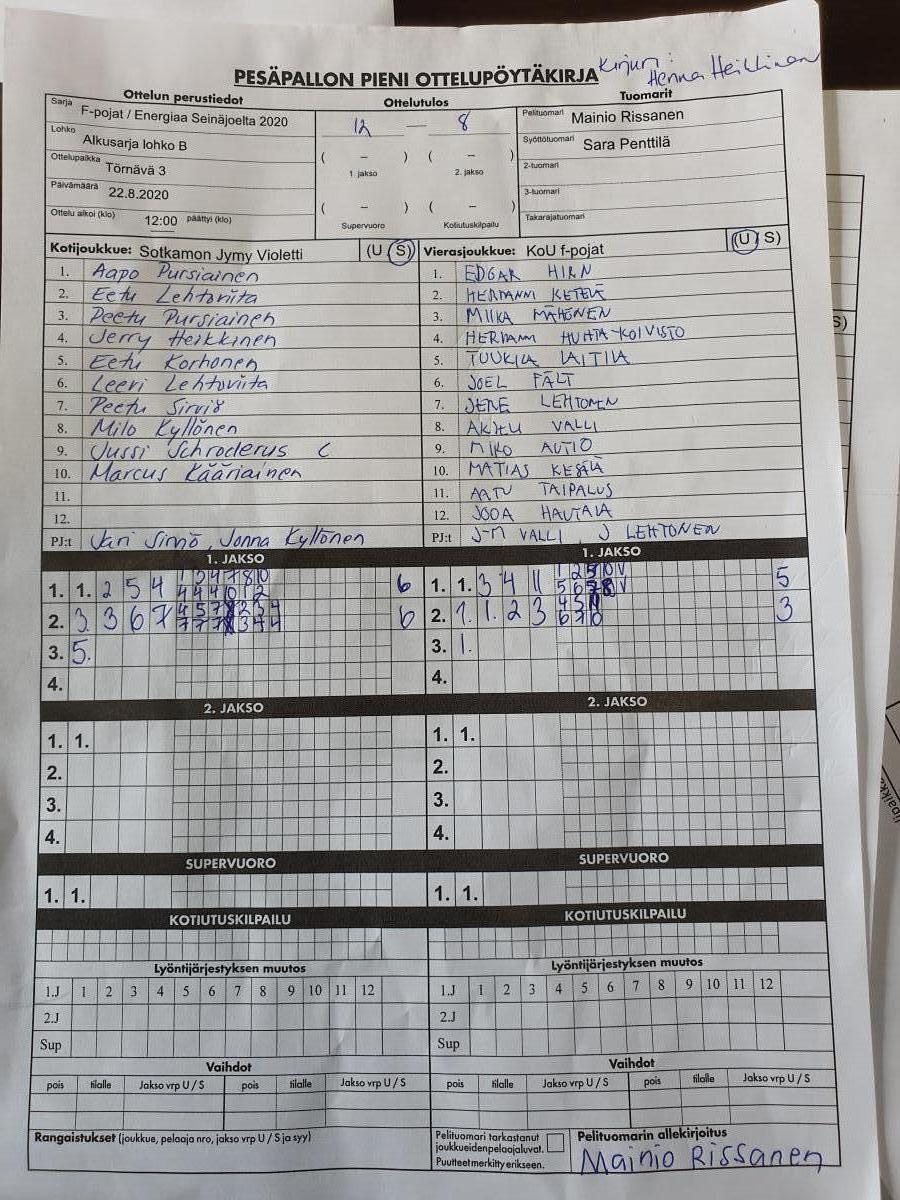 Kirjuri:
Henna Heikkinen
PESÄPALLON PIENI OTTELUPÖYTÄKIRJA
Ottelun perustiedot
Ottelutulos
Tuomarit
Sarja F-pojat / Energiaa Seinäjoelta 2020
12 — 8
Pelituomari Mainio Rissanen
Lohko Alkusarja lohko B
( – ) ( – )
Syöttötuomari Sara Penttilä
Ottelupaikka Törnävä 3
1. jakso 2. jakso
2-tuomari
Päivämäärä 22.8.2020
( – ) ( – )
3-tuomari
Ottelu alkoi (klo) 12:00 päättyi (klo)
Supervuoro Kotiutuskilpailu
Takarajatuomari
Kotijoukkue: Sotkamon Jymy Violetti (U S)
Vierasjoukkue: KoU f-pojat (U S)
1. Aapo Pursiainen
1. EDGAR HIRN
2. Eetu Lehtoviita
2. HERMANNI KETELÄ
3. Peetu Pursiainen
3. MIIKA MÄHÖNEN
4. Jerry Heikkinen
4. HERMANNI HUHTA-KOIVISTO
5. Eetu Korhonen
5. TUUKKA LAITILA
6. Leevi Lehtoviita
6. JOEL FÄLT
7. Peetu Sirviö
7. JERE LEHTONEN
8. Milo Kyllönen
8. AKHU VALLI
9. Jussi Schroderus C
9. NIKO AUTIO
10. Marcus Kääriäinen
10. MATIAS KESÄLÄ
11.
11. AATU TAIPALUS
12.
12. JOOA HAUTALA
PJ:t Jari Sirviö, Jonna Kyllönen
PJ:t J-M VALLI, J LEHTONEN
1. JAKSO
1. JAKSO
1. 1. 2 5 4 6
1. 1. 3 4 11 5
2. 3. 3 6 7 6
2. 1. 1. 2 3 3
3. 5.
3. 1.
4.
4.
2. JAKSO
2. JAKSO
1. 1.
1. 1.
2.
2.
3.
3.
4.
4.
SUPERVUORO
SUPERVUORO
1. 1.
1. 1.
KOTIUTUSKILPAILU
KOTIUTUSKILPAILU
Lyöntijärjestyksen muutos
Lyöntijärjestyksen muutos
1.J 1 2 3 4 5 6 7 8 9 10 11 12
1.J 1 2 3 4 5 6 7 8 9 10 11 12
2.J
2.J
Sup
Sup
Vaihdot
Vaihdot
pois tilalle Jakso vrp U / S pois tilalle Jakso vrp U / S
pois tilalle Jakso vrp U / S pois tilalle Jakso vrp U / S
Rangaistukset (joukkue, pelaaja nro, jakso vrp U / S ja syy)
Pelituomari tarkastanut
joukkueidenpelaajaluvat.
Puutteet merkitty erikseen.
Pelituomarin allekirjoitus
Mainio Rissanen